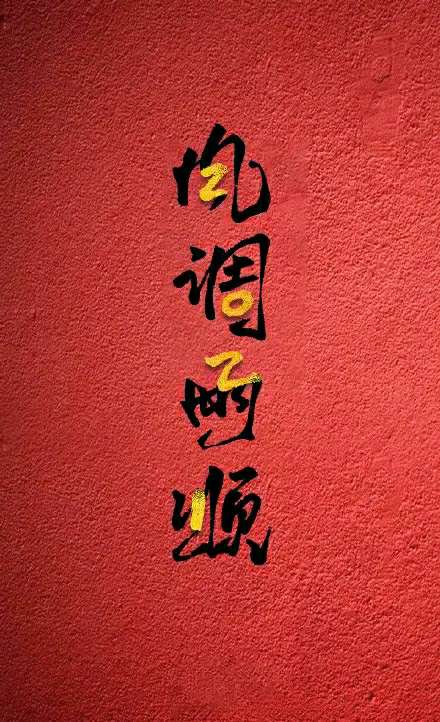 风调雨顺
2021